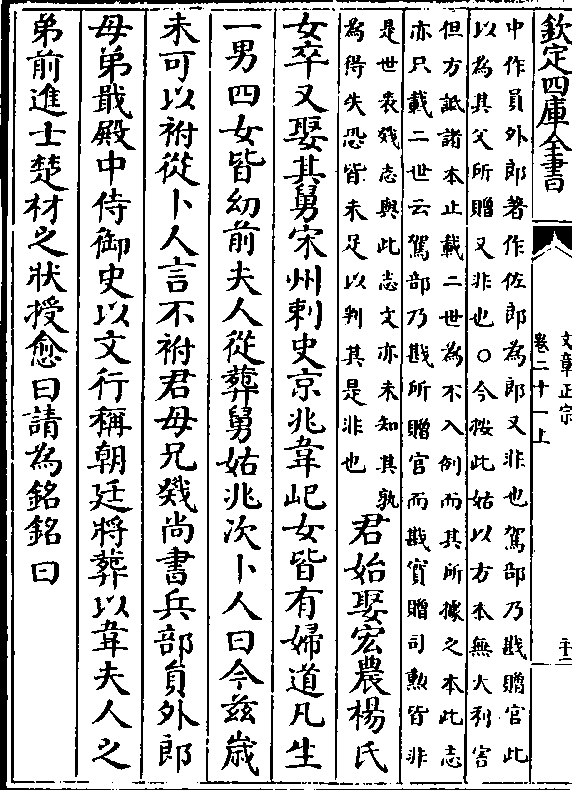 欽定四庫全書
文章正宗
卷二十一上
中作員外郎著作佐郎為郎又非也駕部乃戡贈官此
以為其父所贈又非也○今按此姑以方本無大利害
但方詆諸本止載二世為不入例而其所據之本此志
亦只載二世云駕部乃戡所贈官而戡實贈司勲皆非
是世表戣志與此志文亦未知其孰
為得失恐皆未足以判其是非也
君始娶宏農楊氏
女卒又娶其舅宋州刺史京兆韋屺女皆有婦道凡生
一男四女皆幼前夫人從葬舅姑兆次卜人曰今兹嵗
未可以祔從卜人言不祔君母兄戣尚書兵部員外郎
母弟戢殿中侍御史以文行稱朝廷將葬以韋夫人之
弟前進士楚材之狀授愈曰請為銘銘曰